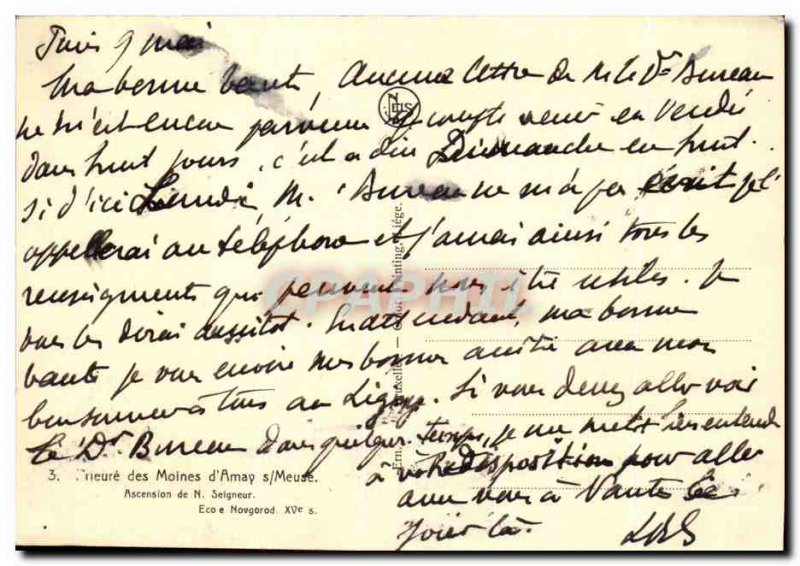 Paris 9 mai
Ma bonne Tante, Aucune lettre de M. le Dr Bureau
NELS
ne m'est encore parvenue. Je compte venir en Vendée
dans huit jours, c'est à dire Dimanche en huit.
Si d'ici Lundi M. Bureau ne m'a pas écrit je l'
appellerai au téléphone et j'aurai ainsi tous les
renseignements qui peuvent nous être utiles. Je
vous les dirai aussitôt. En attendant, ma bonne
tante je vous envoie mes bonnes amitiés avec mon
bon souvenir à tous au
Si vous devez aller voir
le Dr Bureau dans quelques temps, je me mets bien entendu
à votre disposition pour aller
avec vous à Nantes ce
jour là.
3. Prieuré des Moines d'Amay s/Meuse.
Ascension de N. Seigneur.
Ecole Novgorod. XVe s.